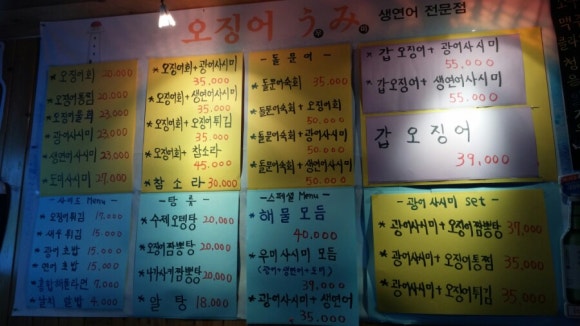 오징어 うみ 생연어 전문점
* 오징어회 20,000
* 오징어통찜 20,000
* 오징어물회 23,000
* 광어사시미 23,000
* 생연어사시미 23,000
* 도미사시미 27,000
* 오징어회+광어사시미
35,000
* 오징어회+생연어사시미
35,000
* 오징어회+오징어튀김
35,000
* 오징어회+참소라
45,000
* 참소라 30,000
- 돌문어 -
* 돌문어숙회 35,000
* 돌문어숙회+오징어회
50,000
* 돌문어숙회+광어사시미
50,000
* 돌문어숙회+생연어사시미
50,000
* 갑오징어+광어사시미
55,000
* 갑오징어+생연어사시미
55,000
갑오징어
39,000
- 사이드 Menu -
* 오징어튀김 17,000
* 새우튀김 15,000
* 광어초밥 15,000
* 연어초밥 15,000
* 날치알밥 4,000
- 탕류 -
* 수제오뎅탕 20,000
* 오징어짬뽕탕 20,000
* 나가사끼짬뽕탕 20,000
* 알탕 18,000
- 스페셜 Menu -
* 해물모듬
40,000
* 우미사시미모듬
(광어+생연어+도미)
39,000
* 광어사시미+생연어
35,000
- 광어사시미 set -
* 광어사시미+오징어짬뽕탕 37,000
* 광어사시미+오징어통찜 35,000
* 광어사시미+오징어튀김 35,000